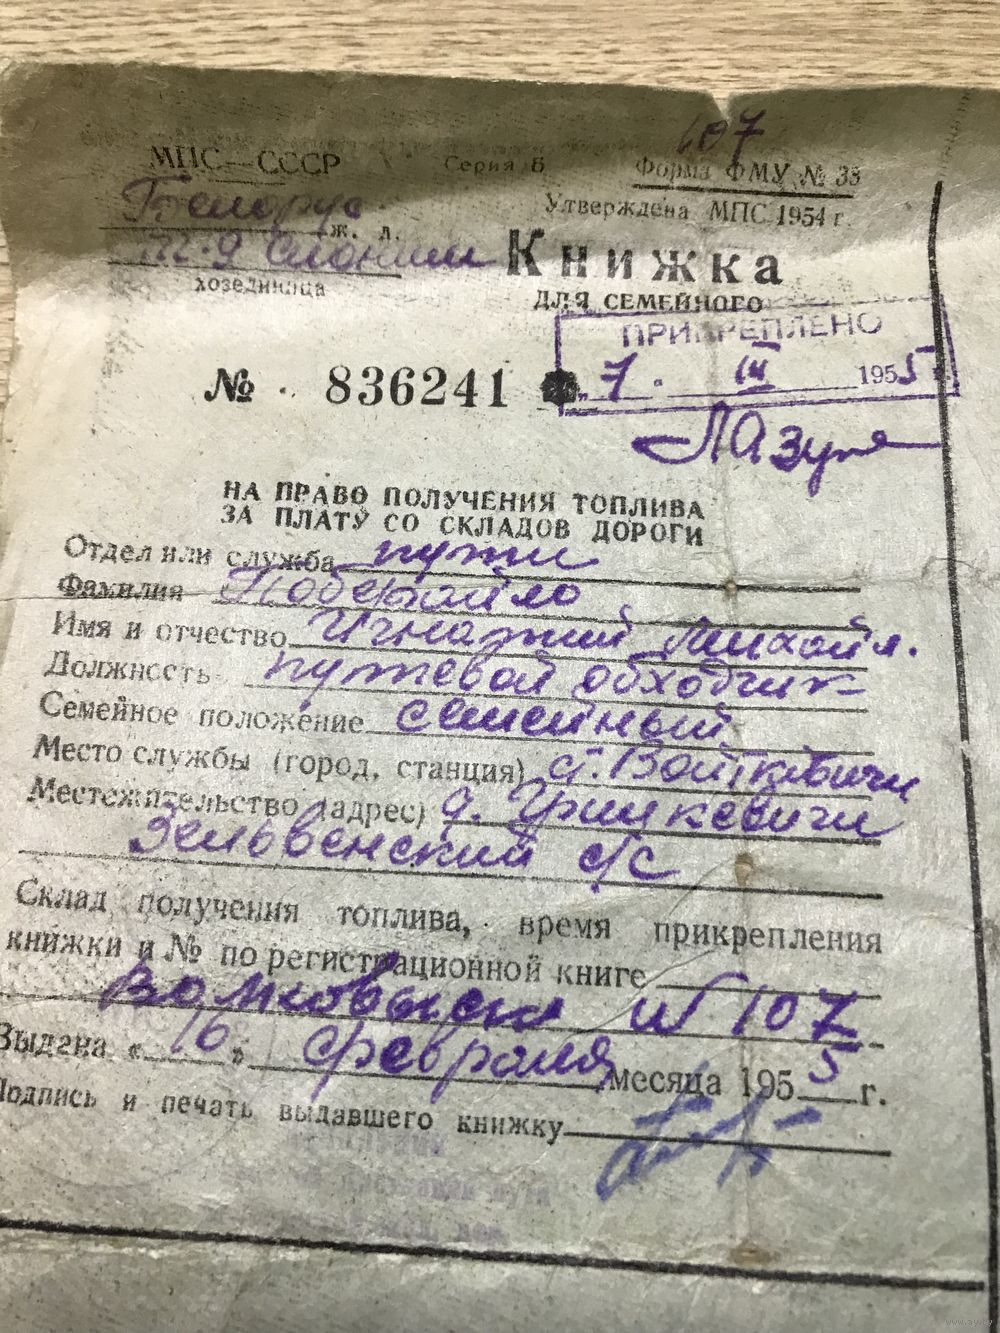 107
МПС—СССР Серия Б Форма ФМУ № 38
Белорус ж. д. Утверждена МПС 1954 г.
Слоним
хозединица
Книжка
ДЛЯ СЕМЕЙНОГО
ПРИКРЕПЛЕНО
№ 836241 „7. III 1955 г.
НА ПРАВО ПОЛУЧЕНИЯ ТОПЛИВА
ЗА ПЛАТУ СО СКЛАДОВ ДОРОГИ
Отдел или служба пути
Фамилия
Имя и отчество Игнатий Михайл.
Должность путевой обходчик
Семейное положение семейный
Место службы (город, станция) ст. Войткевичи
Местожительство (адрес) д. Гринкевичи
Зельвенский с/с
Склад получения топлива, время прикрепления
книжки и № по регистрационной книге
Волковыск № 107
Выдана «16» февраля месяца 1955 г.
Подпись и печать выдавшего книжку